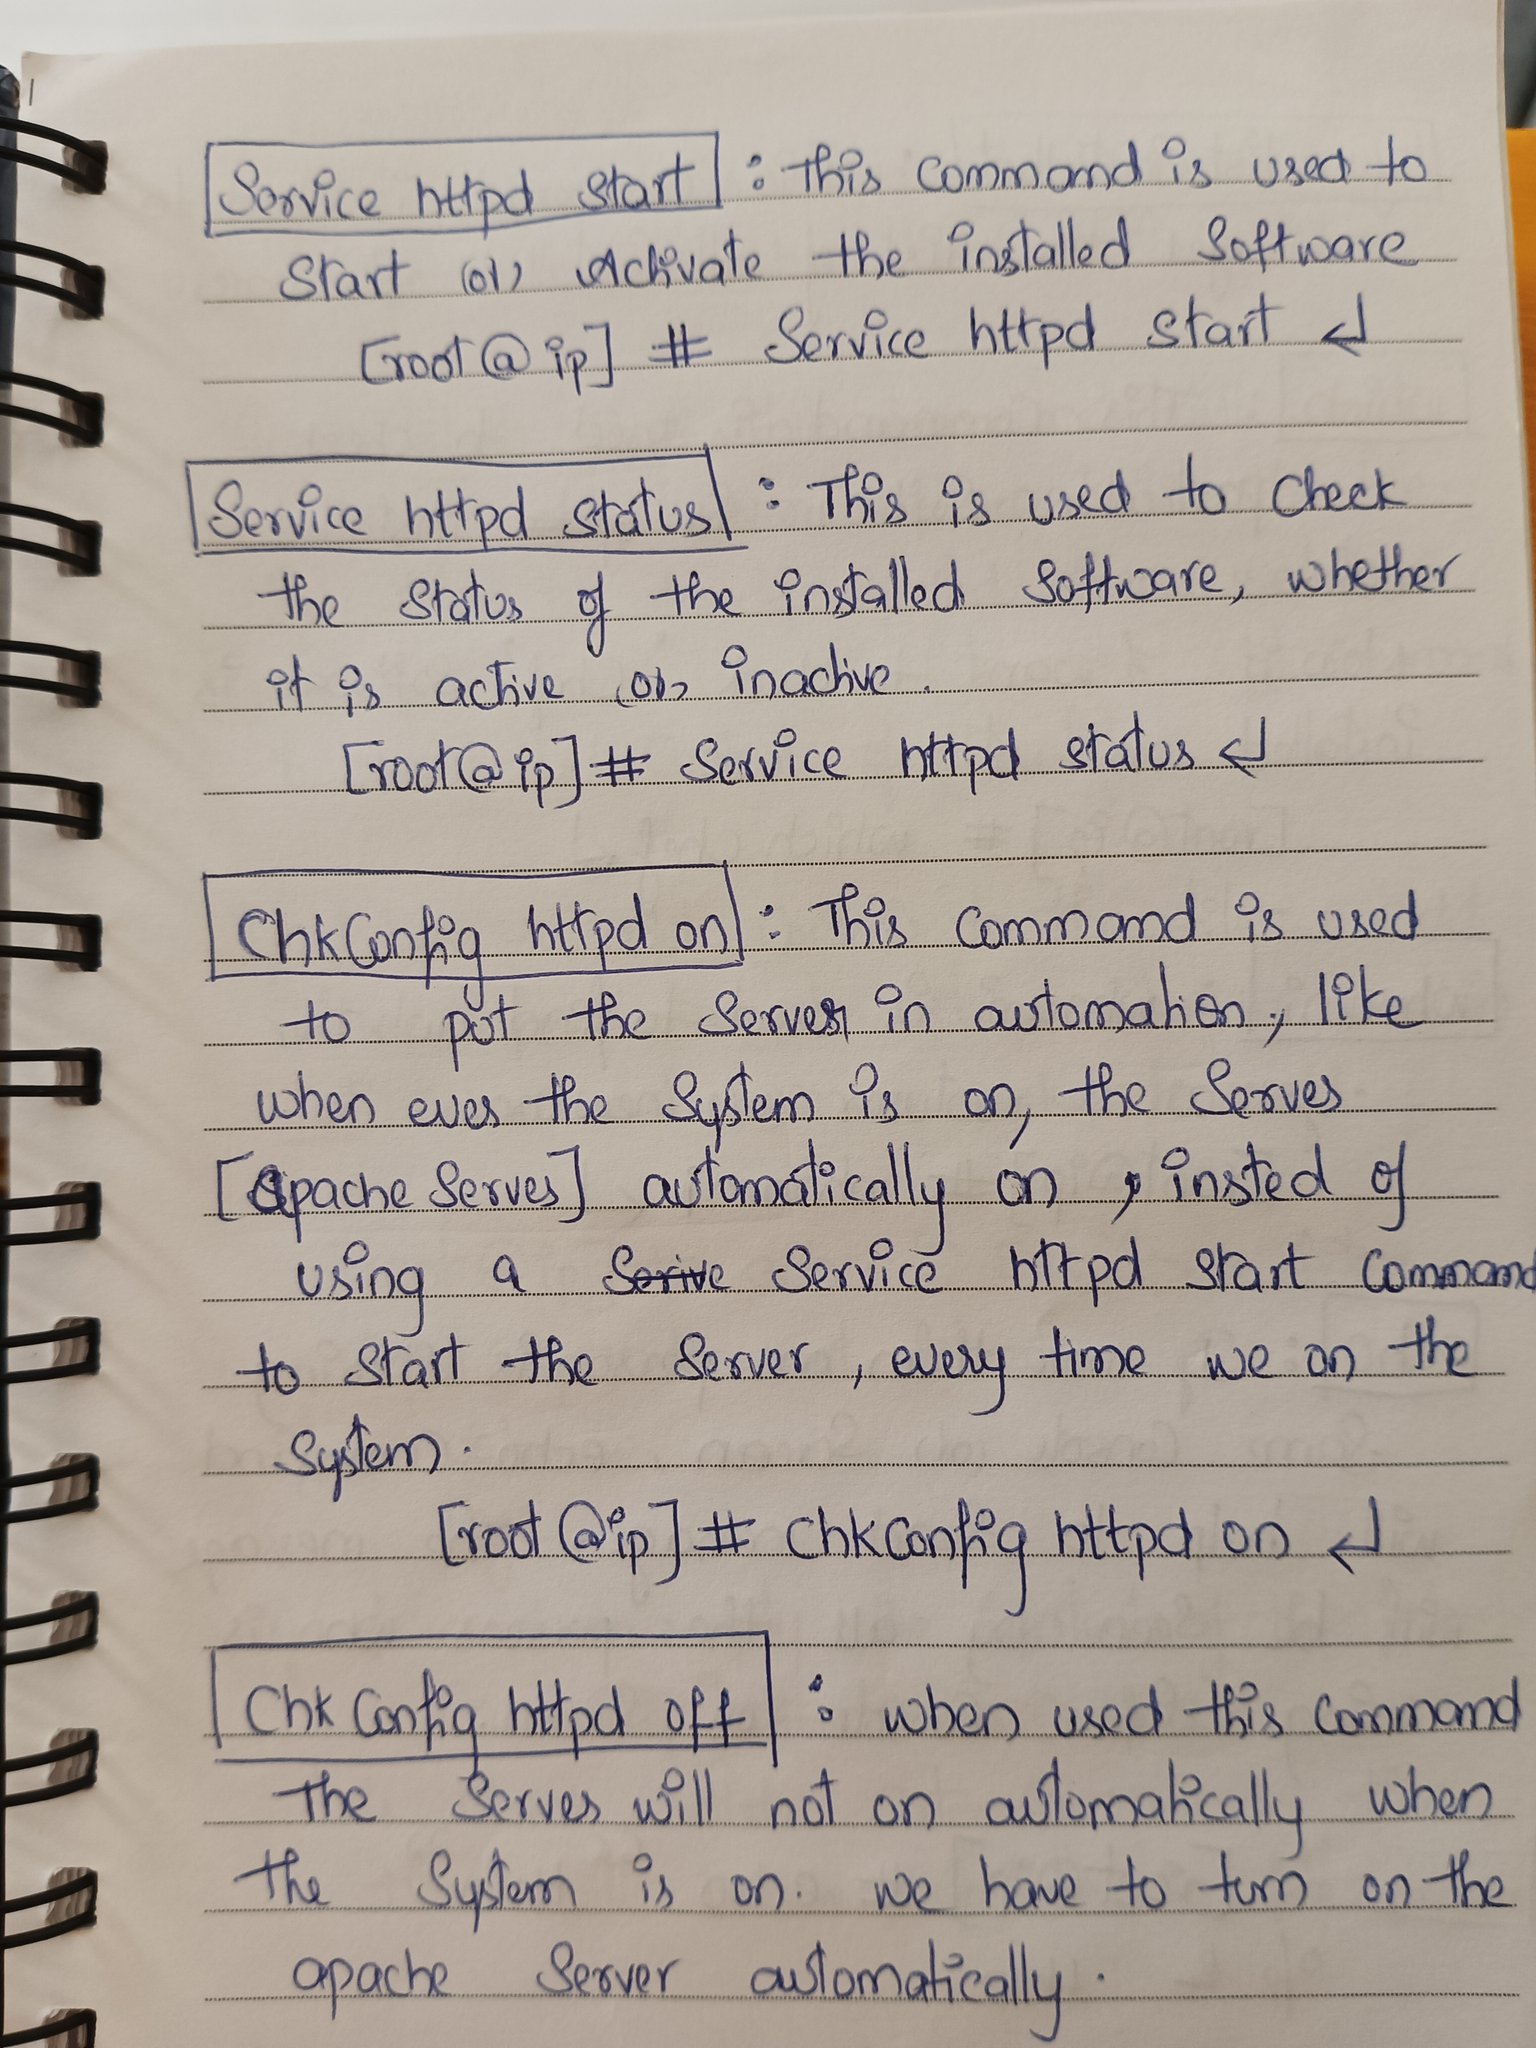 Service httpd start : This command is used to
start (or) Activate the installed software
[root@ip] # Service httpd start ↵
Service httpd status : This is used to check
the status of the installed software, whether
it is active (or) inactive.
[root@ip] # Service httpd status ↵
ChkConfig httpd on : This command is used
to put the server in automation, like
when ever the system is on, the server
[apache server] automatically on, insted of
using a Serive Service httpd start command
to start the server, every time we on the
system.
[root@ip] # ChkConfig httpd on ↵
Chk Config httpd off : when used this command
the server will not on automatically when
the system is on. we have to turn on the
apache server automatically.